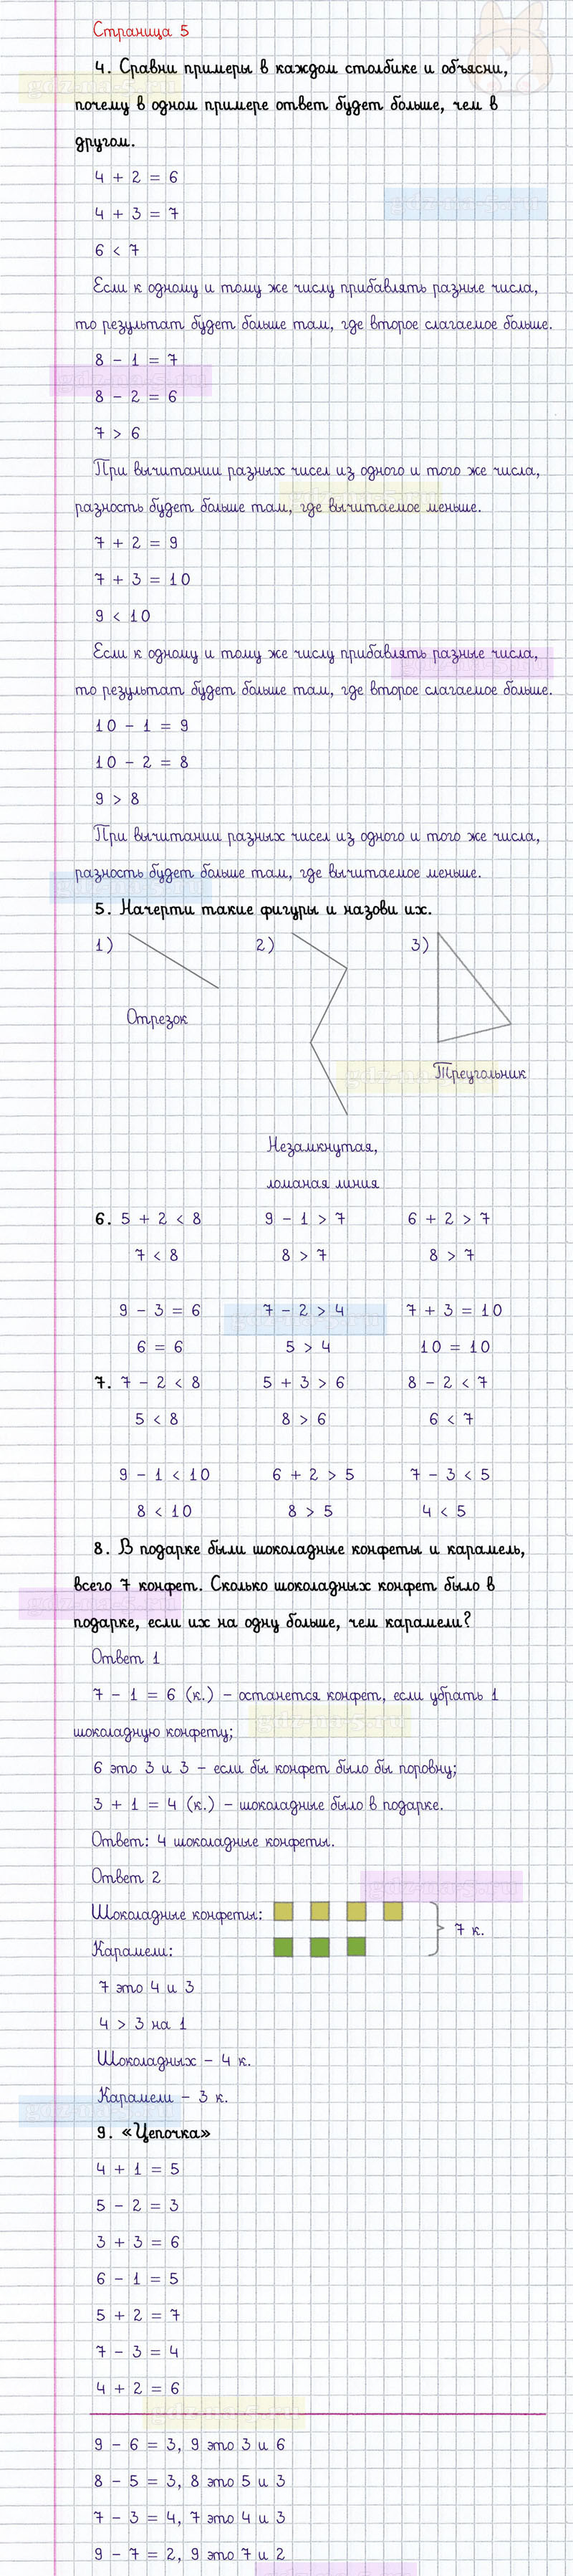 Страница 5
4. Сравни примеры в каждом столбике и объясни,
почему в одном примере ответ будет больше, чем в
другом.
4 + 2 = 6
4 + 3 = 7
6 < 7
Если к одному и тому же числу прибавлять разные числа,
то результат будет больше там, где второе слагаемое больше.
8 - 1 = 7
8 - 2 = 6
7 > 6
При вычитании разных чисел из одного и того же числа,
разность будет больше там, где вычитаемое меньше.
7 + 2 = 9
7 + 3 = 10
9 < 10
Если к одному и тому же числу прибавлять разные числа,
то результат будет больше там, где второе слагаемое больше.
10 - 1 = 9
10 - 2 = 8
9 > 8
При вычитании разных чисел из одного и того же числа,
разность будет больше там, где вычитаемое меньше.
5. Начерти такие фигуры и назови их.
1) 2) 3)
Отрезок
Треугольник
Незамкнутая,
ломаная линия
6. 5 + 2 < 8 9 - 1 > 7 6 + 2 > 7
7 < 8 8 > 7 8 > 7
9 - 3 = 6 7 - 2 > 4 7 + 3 = 10
6 = 6 5 > 4 10 = 10
7. 7 - 2 < 8 5 + 3 > 6 8 - 2 < 7
5 < 8 8 > 6 6 < 7
9 - 1 < 10 6 + 2 > 5 7 - 3 < 5
8 < 10 8 > 5 4 < 5
8. В подарке были шоколадные конфеты и карамель,
всего 7 конфет. Сколько шоколадных конфет было в
подарке, если их на одну больше, чем карамели?
Ответ 1
7 - 1 = 6 (к.) - останется конфет, если убрать 1
шоколадную конфету;
6 это 3 и 3 - если бы конфет было бы поровну;
3 + 1 = 4 (к.) - шоколадные было в подарке.
Ответ: 4 шоколадные конфеты.
Ответ 2
Шоколадные конфеты:
7 к.
Карамели:
7 это 4 и 3
4 > 3 на 1
Шоколадных - 4 к.
Карамели - 3 к.
9. «Цепочка»
4 + 1 = 5
5 - 2 = 3
3 + 3 = 6
6 - 1 = 5
5 + 2 = 7
7 - 3 = 4
4 + 2 = 6
9 - 6 = 3, 9 это 3 и 6
8 - 5 = 3, 8 это 5 и 3
7 - 3 = 4, 7 это 4 и 3
9 - 7 = 2, 9 это 7 и 2